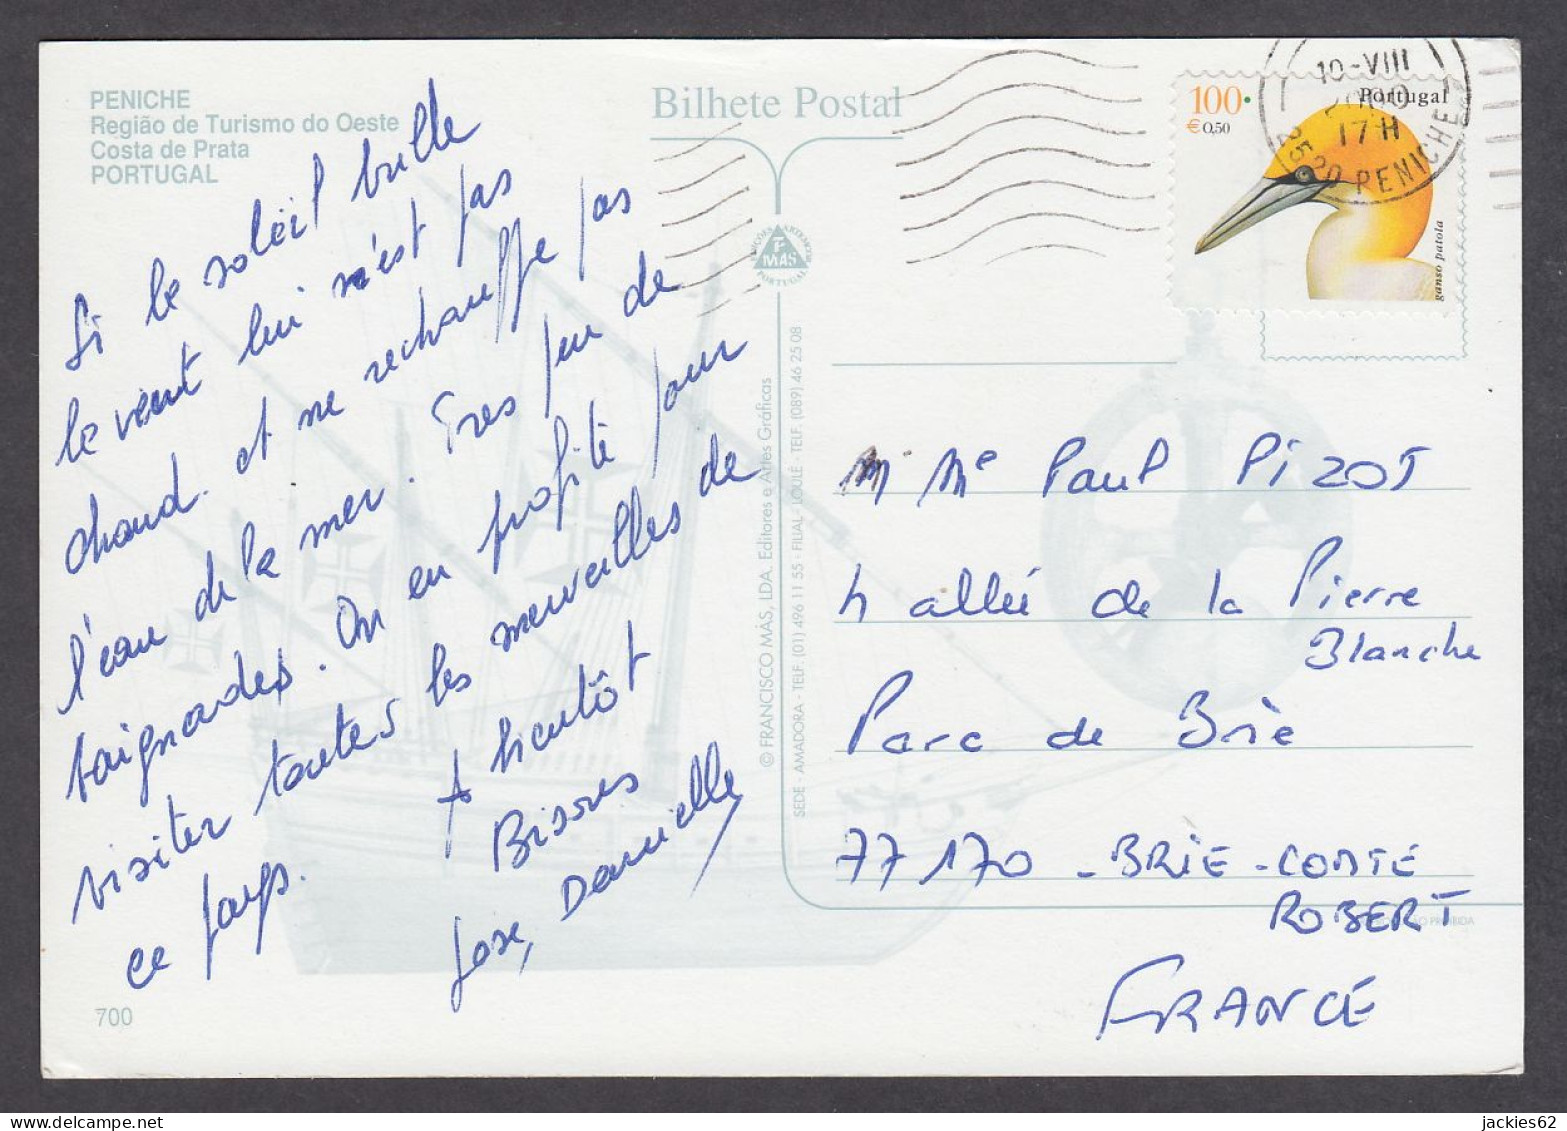 PENICHE
Região de Turismo do Oeste
Costa de Prata
PORTUGAL
Bilhete Postal
Si le soleil brille
le vent lui n'est pas
chaud et ne rechauffe pas
l'eau de la mer. Très peu de
baignades. On en profite pour
visiter toutes les merveilles de
ce pays. A bientôt
Bisous
Jose, Danielle
700
© FRANCISCO MÁS, LDA. Editores e Artes Gráficas
SEDE - AMADORA - TELF. (01) 496 11 55 - FILIAL - LOULÉ - TELF. (089) 46 25 08
MÁS
PORTUGAL
100
€0,50
Portugal
ganso patola
10-VIII
17H
2520 PENICHE
M Me Paul PIZOT
4 allée de la Pierre
Blanche
Parc de Brie
77170 - BRIE-COMTE
ROBERT
FRANCE
PROIBIDA
jackies62